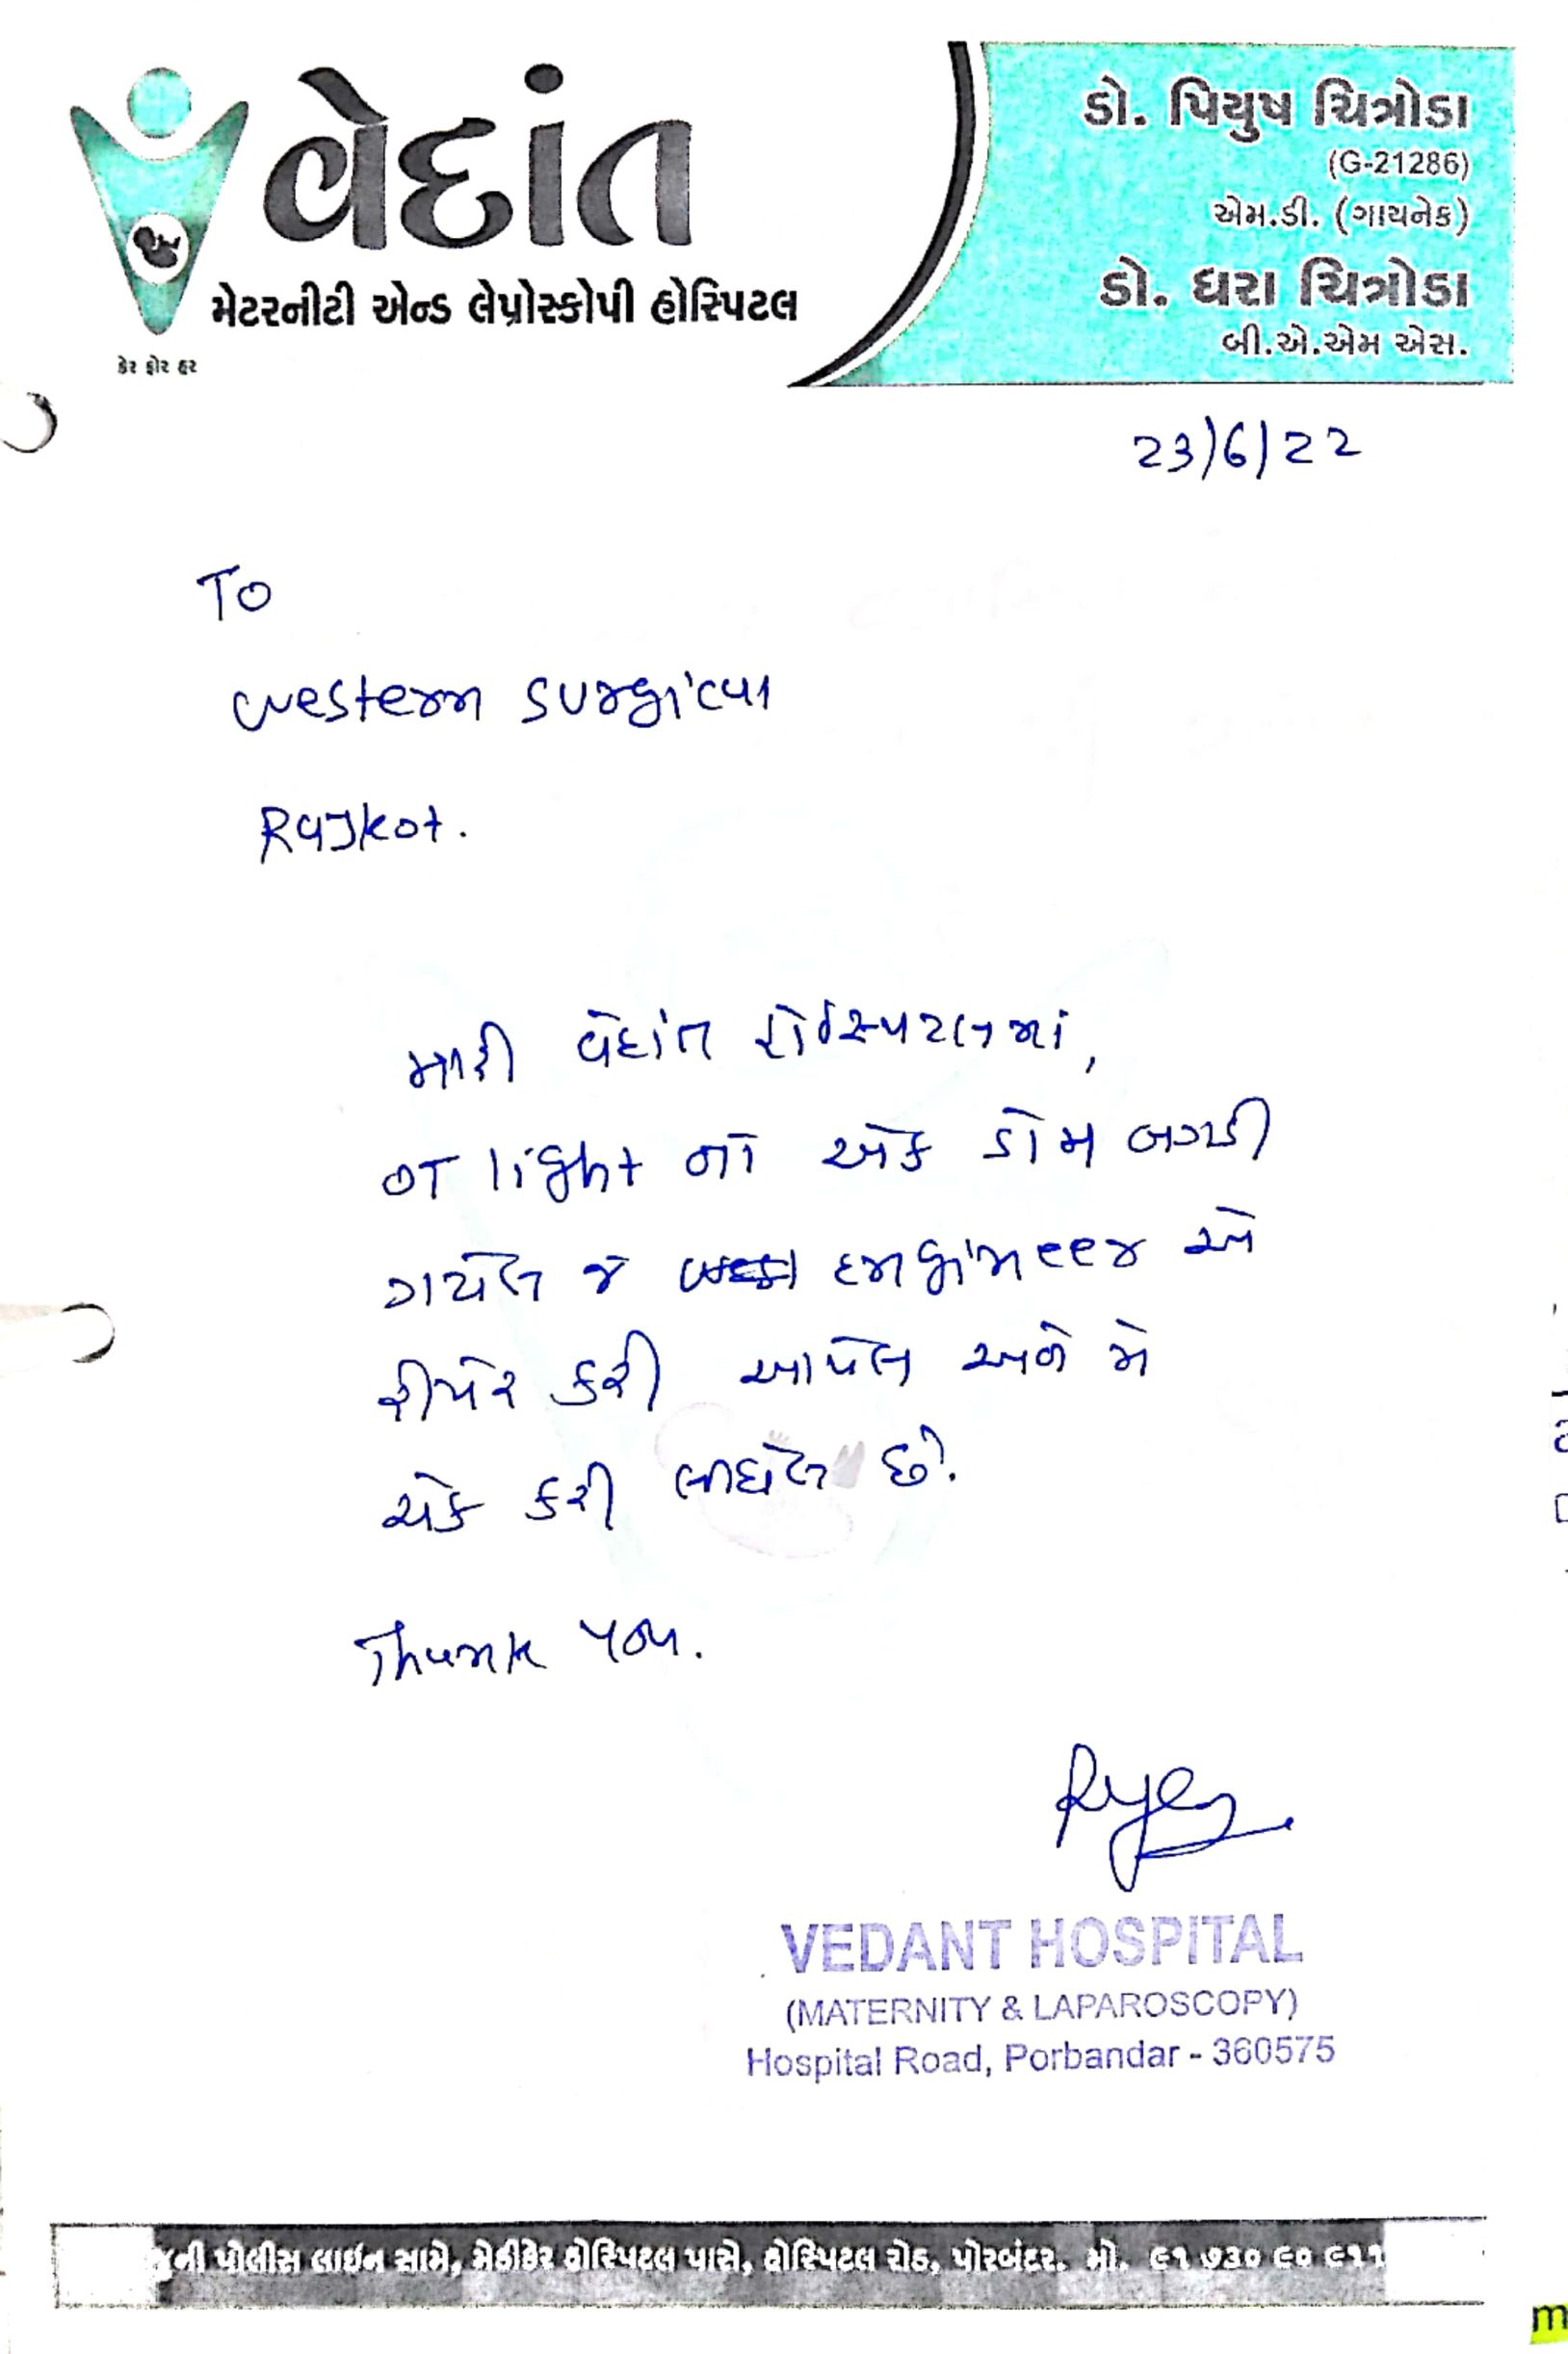 વેદાંત
મેટરનીટી એન્ડ લેપ્રોસ્કોપી હોસ્પિટલ
કેર ફોર હર
ડો. પિયુષ ચિત્રોડા
(G-21286)
એમ.ડી. (ગાયનેક)
ડો. ધરા ચિત્રોડા
બી.એ.એમ એસ.
23/6/22
To
Western Surgical
Rajkot.
મારી વેદાંત હોસ્પિટલમાં,
OT light નો એક ડોમ બગડી
ગયેલ જે engineer એ
રીપેર કરી આપેલ અને મે
ચેક કરી લીધેલ છે.
Thank you.
VEDANT HOSPITAL
(MATERNITY & LAPAROSCOPY)
Hospital Road, Porbandar - 360575
જુની પોલીસ લાઇન સામે, મેડીકેર હોસ્પિટલ પાસે, હોસ્પિટલ રોડ, પોરબંદર. મો. ૯૧ ૭૩૦ ૯૦ ૯૧૧